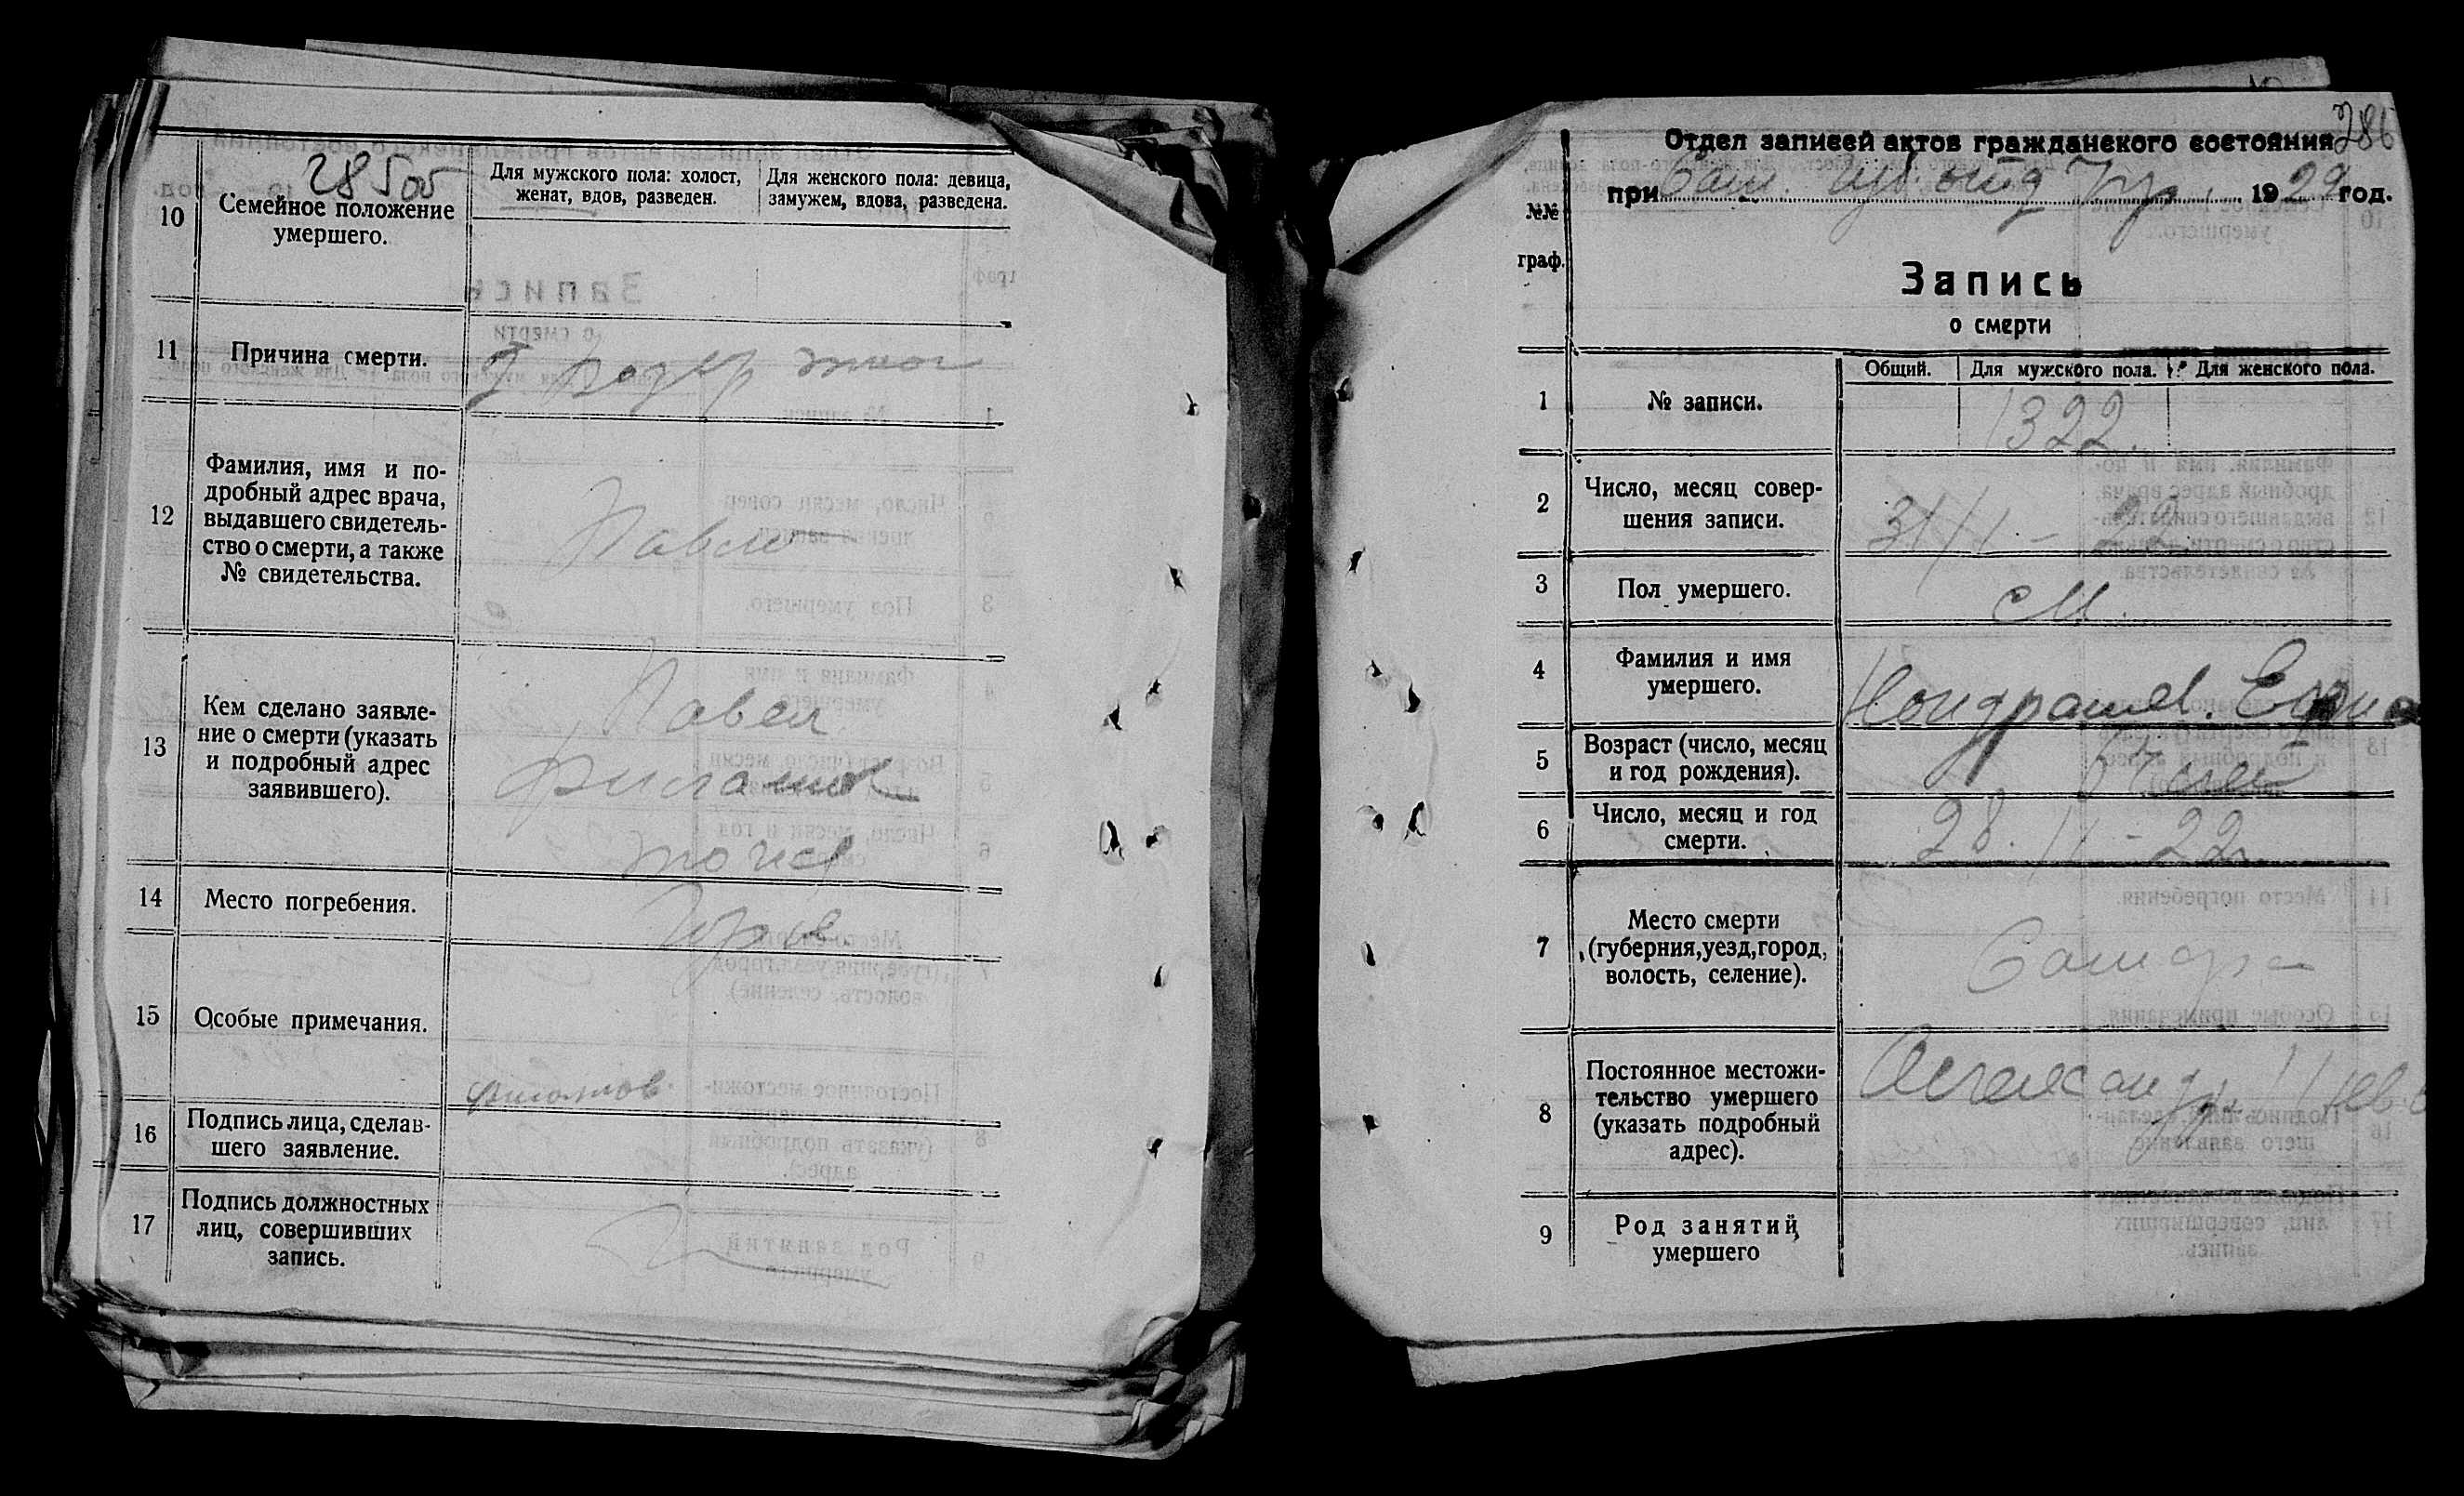 28505
10
Семейное положение
умершего.
Для мужского пола: холост,
женат, вдов, разведен.
Для женского пола: девица,
замужем, вдова, разведена.
11
Причина смерти.
12
Фамилия, имя и по-
дробный адрес врача,
выдавшего свидетель-
ство о смерти, а также
№ свидетельства.
Павлов
13
Кем сделано заявле-
ние о смерти (указать
и подробный адрес
заявившего).
Павел
Филатов
14
Место погребения.
15
Особые примечания.
Филатов
16
Подпись лица, сделав-
шего заявление.
17
Подпись должностных
лиц, совершивших
запись.
286
Отдел записей актов гражданского состояния
при 1922 год.
№№
граф.
Запись
о смерти
1
№ записи.
Общий.
Для мужского пола.
Для женского пола.
1322.
2
Число, месяц совер-
шения записи.
31/I - 22
3
Пол умершего.
М.
4
Фамилия и имя
умершего.
Кондрашев.
5
Возраст (число, месяц
и год рождения).
6
Число, месяц и год
смерти.
28. - 22
7
Место смерти
(губерния, уезд, город,
волость, селение).
Самара
8
Постоянное местожи-
тельство умершего
(указать подробный
адрес).
Александр. Нев.
9
Род занятий
умершего